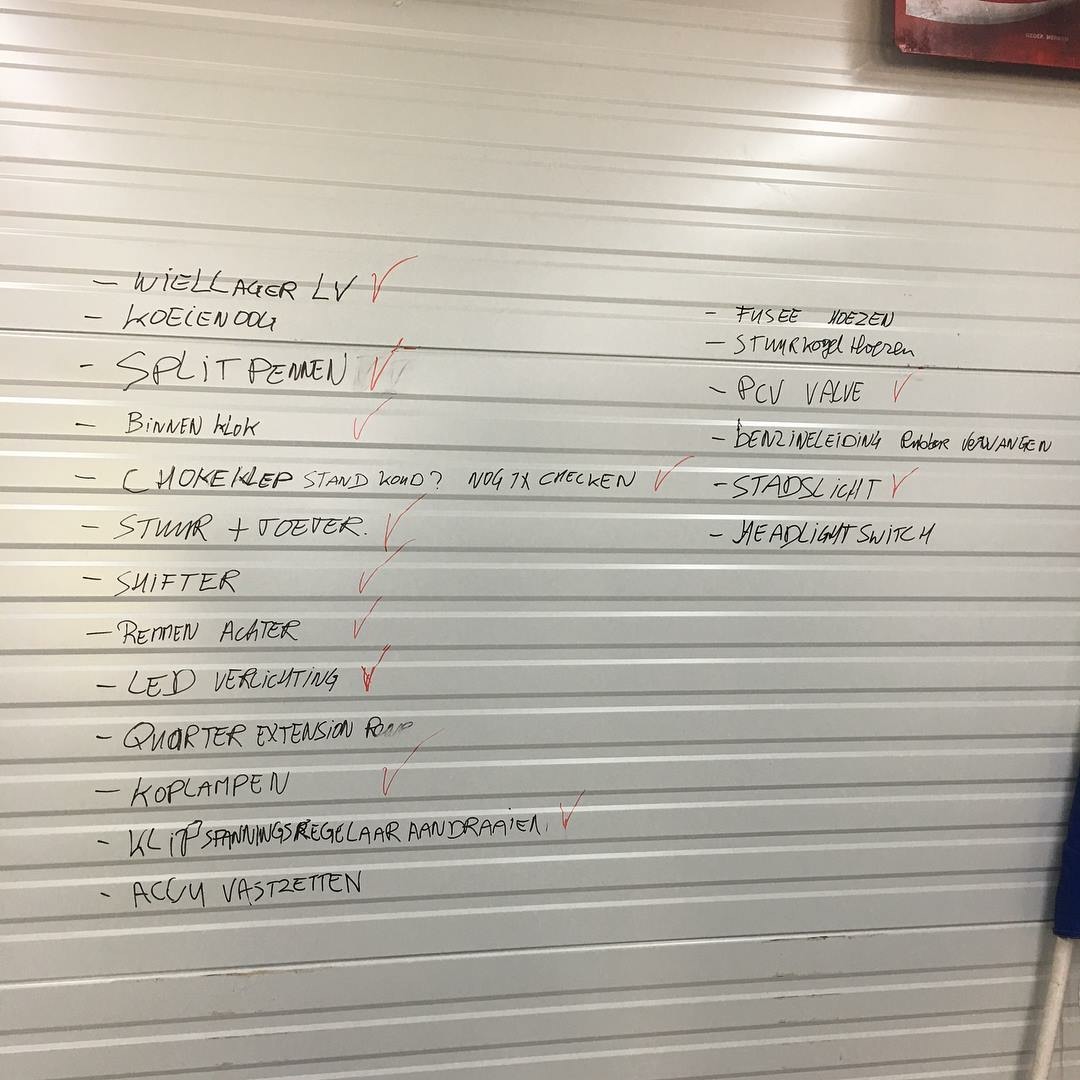 - WIELLAGER LV
- KOEIENOOG
- SPLITPENNEN
- BINNEN KLOK
- CHOKEKLEP STAND KOUD? NOG 1X CHECKEN
- STUUR + TOEVER.
- SHIFTER
- REMMEN ACHTER
- LED VERLICHTING
- QUARTER EXTENSION
- KOPLAMPEN
- KLIP SPANNINGSREGELAAR AANDRAAIEN.
- ACCU VASTZETTEN
- FUSEE HOEZEN
- STUURKogel Hoezen
- PCV VALVE
- BENZINELEIDING Rubber VERVANGEN
- STADSLICHT
- HEADLIGHT SWITCH